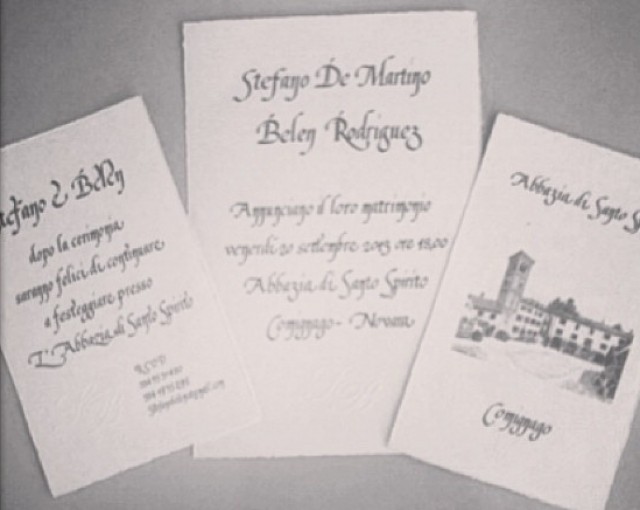 Stefano & Belen
dopo la cerimonia
saranno felici di continuare
a festeggiare presso
L'Abbazia di Santo Spirito
RSVP
Stefano De Martino
Belen Rodriguez
Annunciano il loro matrimonio
venerdi 20 settembre 2013 ore 18,00
Abbazia di Santo Spirito
Comignago - Novara
Abbazia di Santo Sp
Comignago